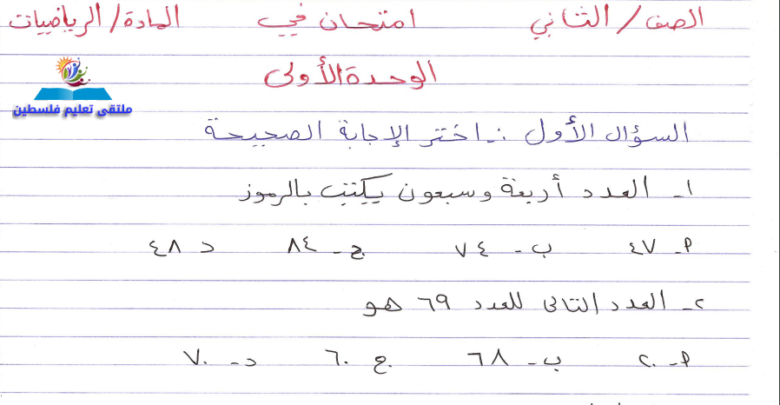 الصف / الثاني امتحان في المادة / الرياضيات
الوحدة الأولى
ملتقى تعليم فلسطين
السؤال الأول :- اختر الإجابة الصحيحة
١- العدد أربعة وسبعون يكتب بالرموز
أ- ٤٧ ب- ٧٤ ج- ٨٤ د ٤٨
٢- العدد التالي للعدد ٦٩ هو
أ- ٢٠ ب- ٦٨ ج ٦٠ د- ٧٠